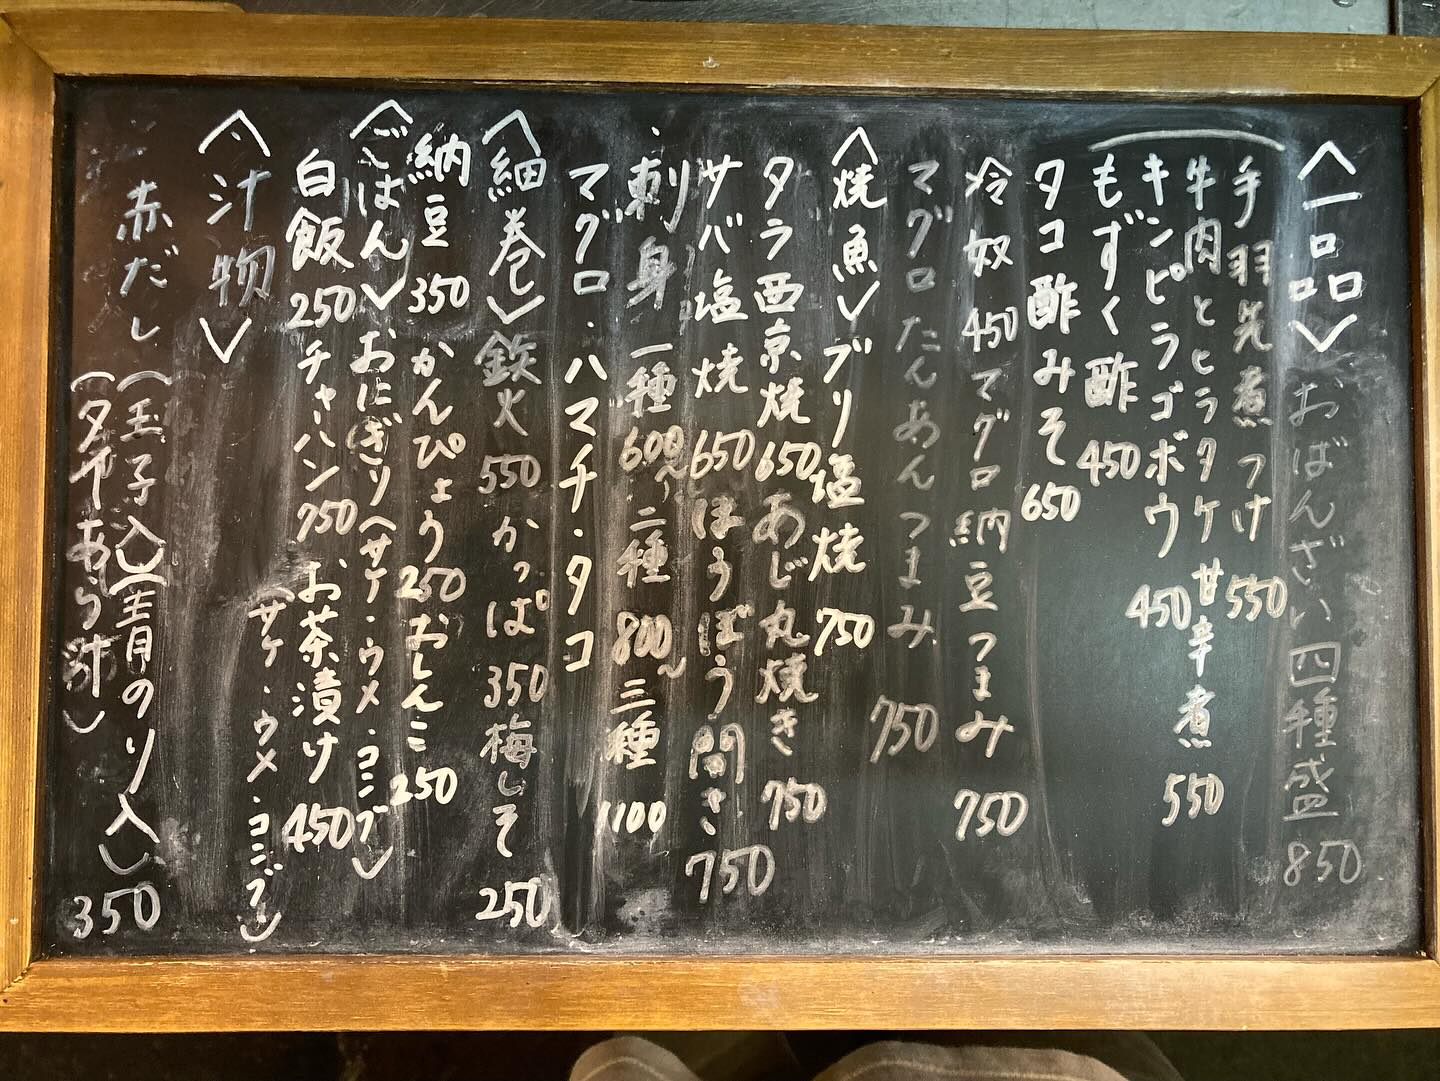 〈一品〉おばんざい四種盛 850
手羽先煮つけ 550
牛肉とヒラタケ甘辛煮 550
キンピラゴボウ 450
もずく酢 450
タコ酢みそ 650
冷奴 450 マグロ納豆つまみ 750
マグロたんあんつまみ 750
〈焼魚〉ブリ塩焼 750
タラ西京焼 650 あじ丸焼き 750
サバ塩焼 650 ほうぼう開き 750
・刺身 一種 600〜 二種 800〜 三種 1100
マグロ・ハマチ・タコ
〈細巻〉鉄火 550 かっぱ 350 梅しそ 250
納豆 350 かんぴょう 250 おしんこ 250
〈ごはん〉おにぎり(サケ・ウメ・コンブ)
白飯 250 チャーハン 750 お茶漬け 450
(サケ・ウメ・コンブ)
〈汁物〉
赤だし(玉子入)(青のり入) 350
(タイあら汁)